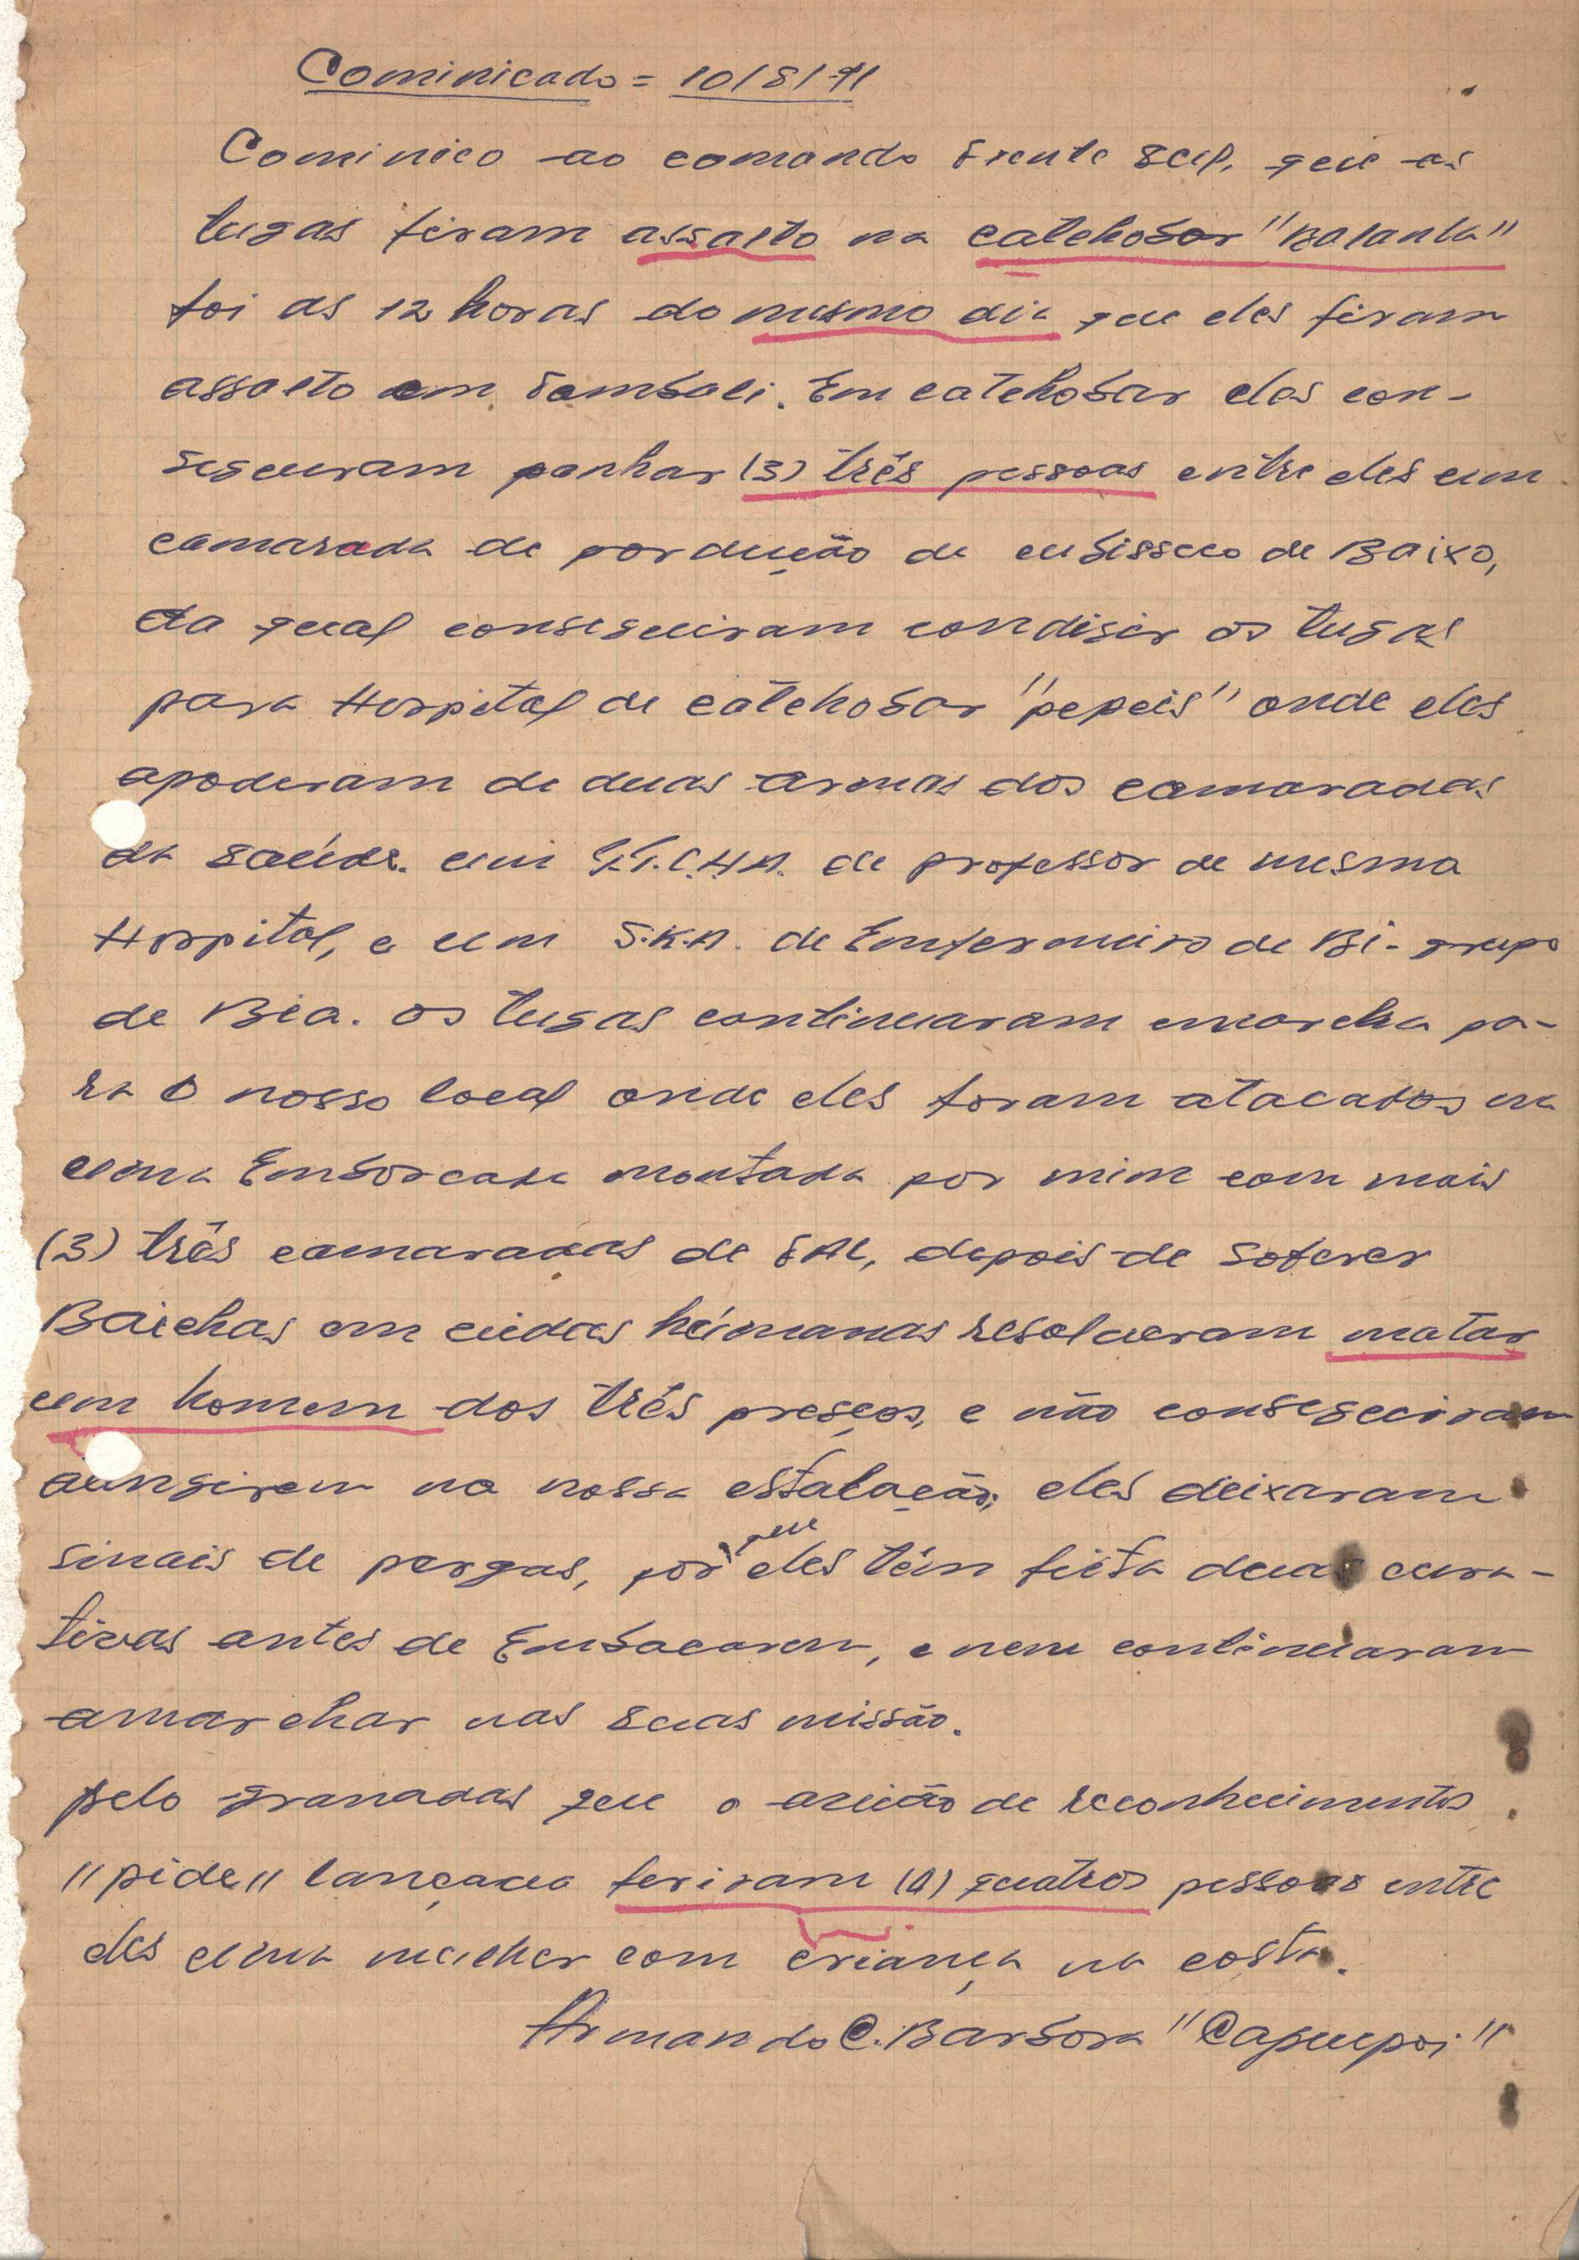 Cominicado = 10/8/71
Cominico ao comando Frente Sul, que os
tugas firam assalto na catchobar "Balanta"
foi as 12 horas do mesmo dia que eles firam
assalto em Tambali. Em catchobar eles con-
seguram panhar (3) três pessoas entre eles um
camarada de pordução de cubisseco de Baixo,
da qual conseguiram condisir os tugas
para Hospital de catchobar "pepeis" onde eles
apoderam de duas armas dos camaradas
da saúde. um de professor de mesma
Hospital, e um S.K.A. de Enfermeiro de Bi-grupo
de Bia. os tugas continuaram marcha pa-
ra o nosso local onde eles foram atacados na
uma Emborcada montada por mim com mais
(3) três camaradas de FAL, depois de soferer
Baichas em vidas húmanas resolveram matar
um homem dos três preços, e não conseguiram
atingirem na nossa estalação; eles deixaram
sinais de pergas, por que eles têm fieta duas cura-
tivas antes de Embacarem, e nem continuaram
amarchar nas suas missão.
pelo granadas que o avião de reconhecimentos
"pide" lançava feriram (4) quatros pessoas entre
eles uma mulher com criança na costa.
Armando C. Barbosa "Caguepoi"